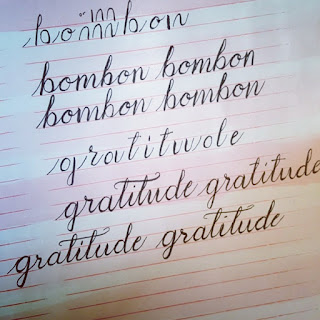 bombon
bombon bombon
bombon bombon
gratitude
gratitude gratitude
gratitude gratitude